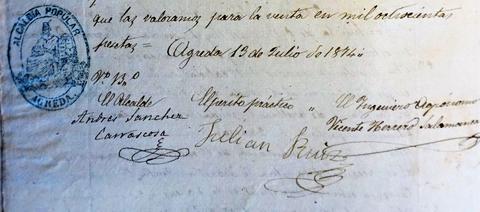 que las valoramos para la venta en mil ochocientas
pesetas = Agreda 13 de Julio de 1874.
ALCALDIA POPULAR
AGREDA
Vº Bº
El Alcalde El perito práctico " El Ingeniero Agrónomo
Andrés Sanchez Vicente Herrero Salamanca
Carrascosa Julian Ruiz